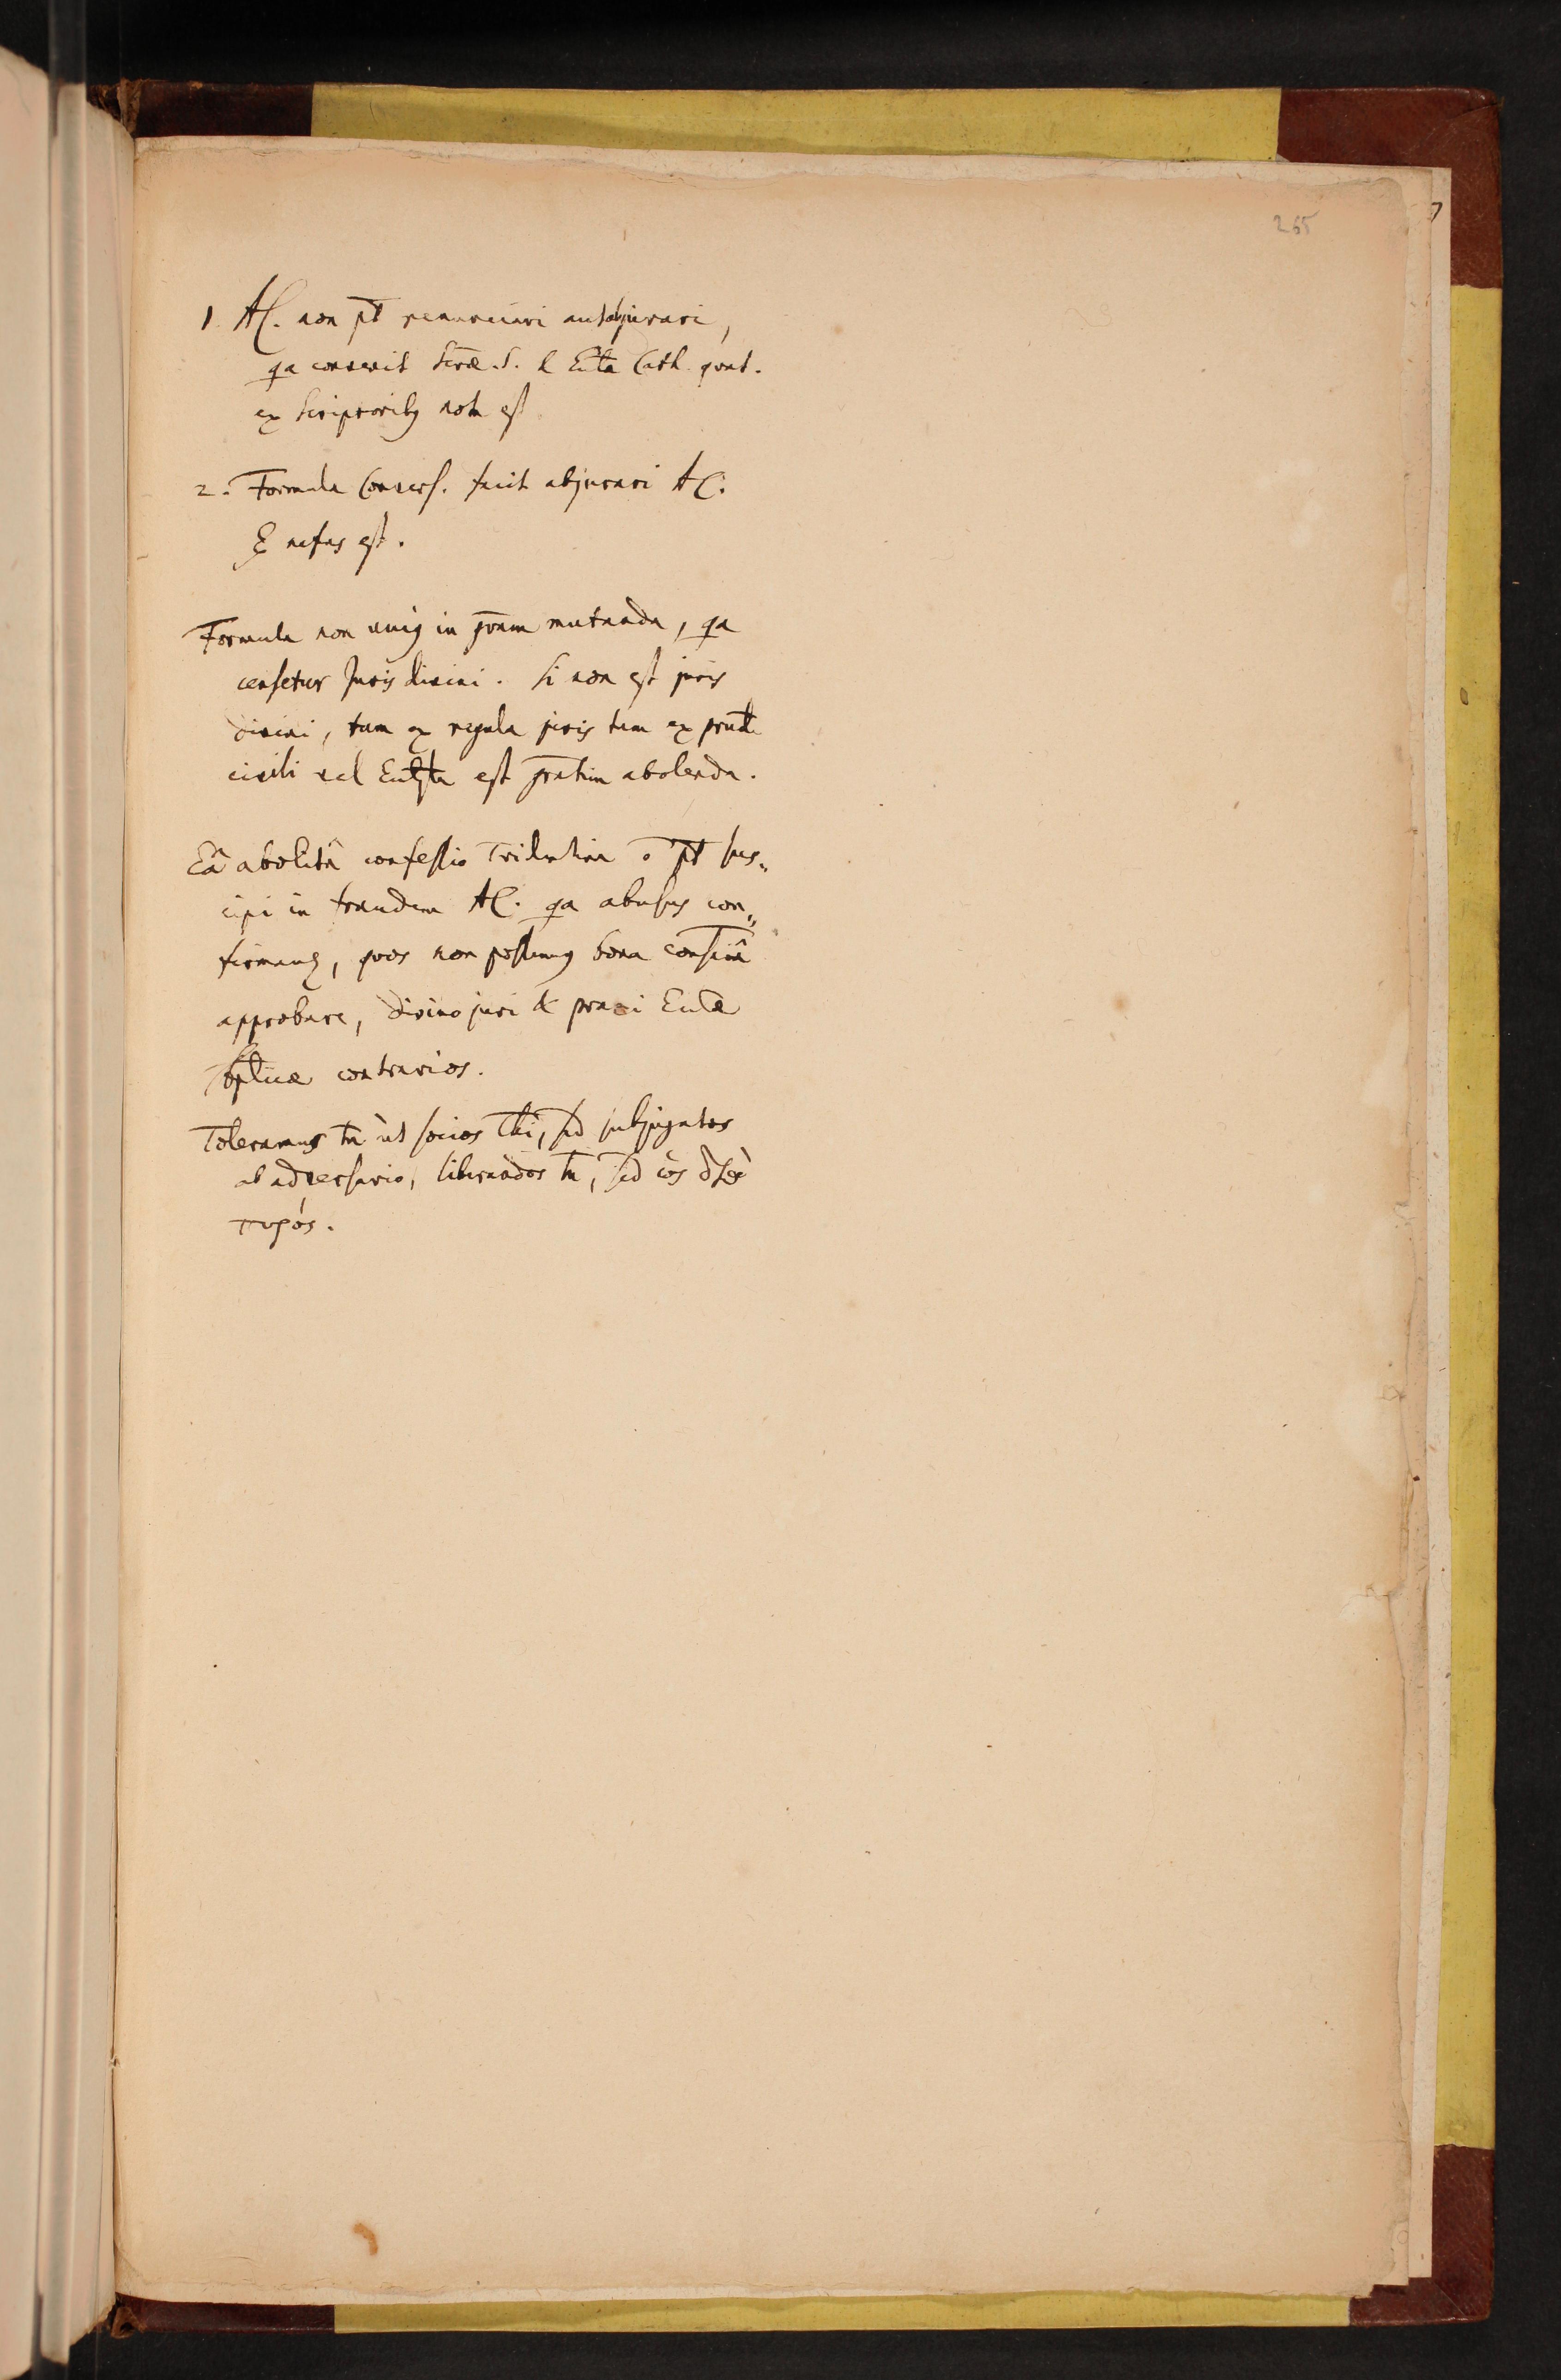 265
1. AC. non pt renunciari aut abjurari,
qa convenit Scrae. S. & Ecta Cath. quat.
ex Scriptoribq not est
2. Formula Convers. facit abjurari AC.
E nefas est.
Formula non uniq in pram mutanda, qa
censetur Juris divini. Si non est juris
divini, tam ex regula juris tam ex prud.
civili vel est pratim abolenda.
Eâ abolitâ confessio Tridentina o pt sus„
cipi in fraudem AC. qa abusus con„
firmantq, quos non possumq bona consciâ
approbare, divino juri & praxi Ecctae
contrarios.
Toleramus tn ut socios Chi, sed subjugatos
ab adversario, liberandos tn, sed ὡς διὰ
πυρός.